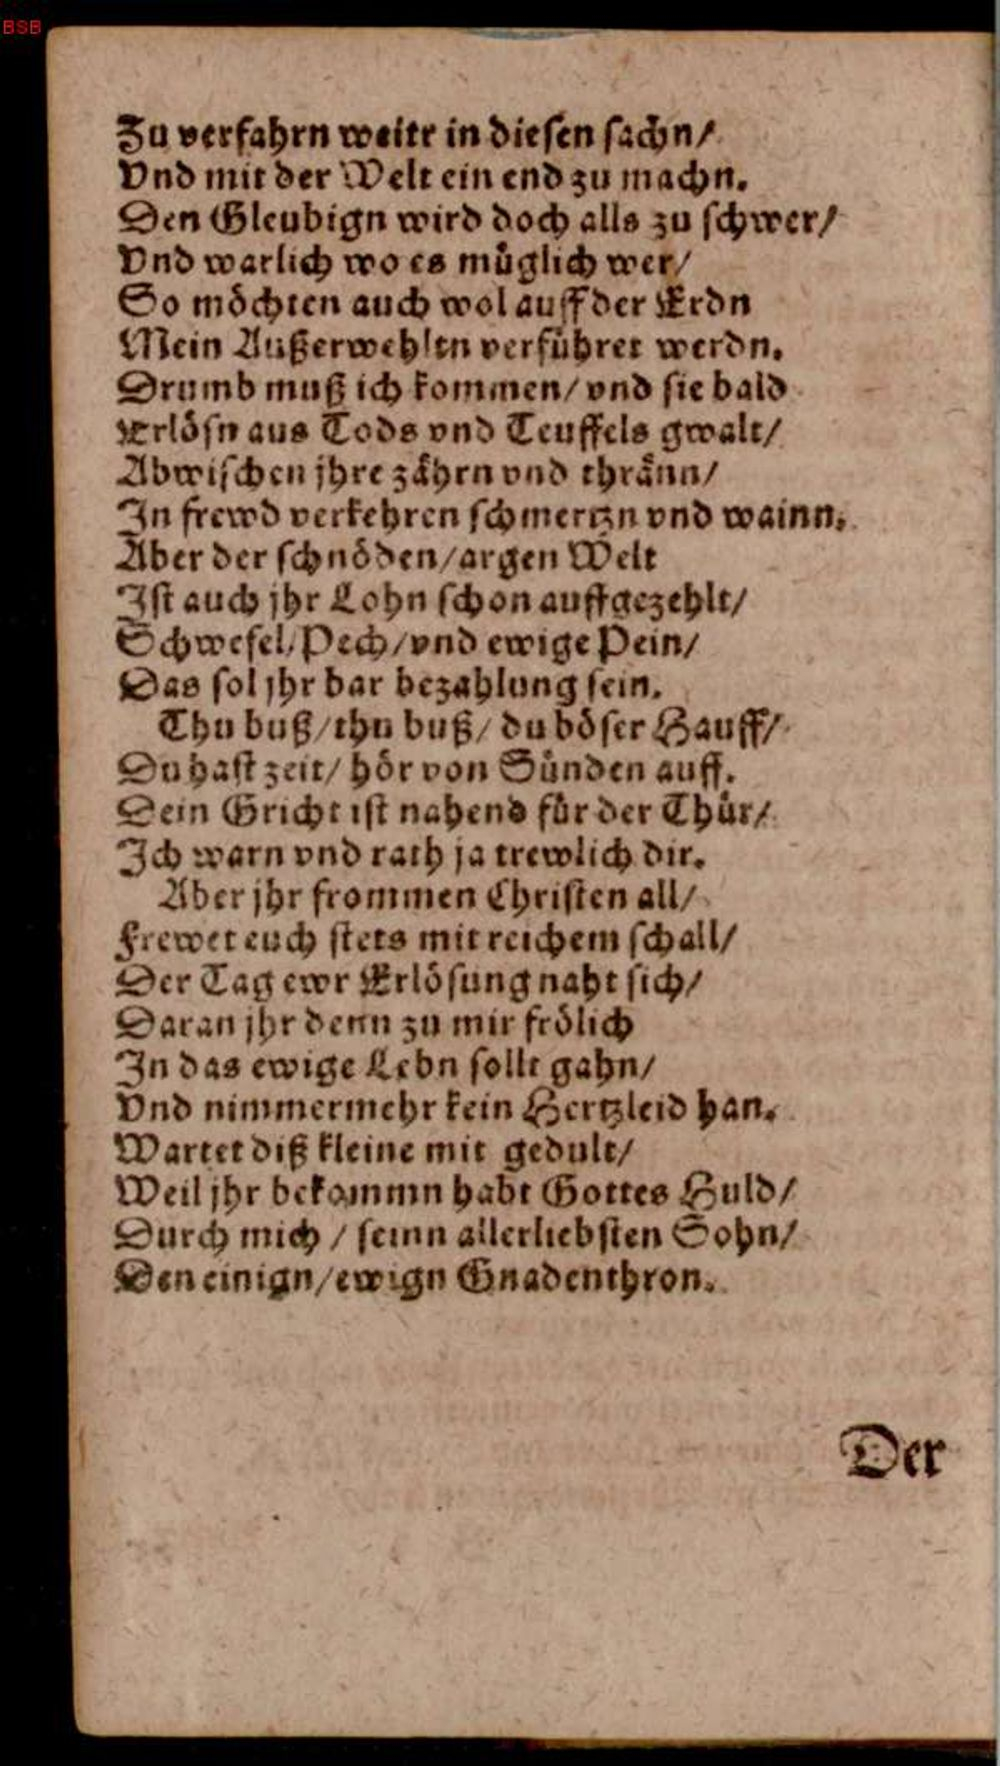 BSB
Zu verfahrn weitr in diesen sachn/
Vnd mit der Welt ein end zu machn.
Den Gleubign wird doch alls zu schwer/
Vnd warlich wo es müglich wer/
So möchten auch wol auff der Erdn
Mein Außerwehltn verführet werdn.
Drumb muß ich kommen/ vnd sie bald
Erlösn aus Tods vnd Teuffels gwalt/
Abwischen jhre zährn vnd thränn/
In frewd verkehren schmertzn vnd wainn.
Aber der schnöden/argen Welt
Ist auch jhr Lohn schon auffgezehlt/
Schwefel/Pech/vnd ewige Pein/
Das sol jhr bar bezahlung sein.
Thu buß/thu buß/ du böser Hauff/
Du hast zeit/ hör von Sünden auff.
Dein Gricht ist nahend für der Thür/
Ich warn vnd rath ja trewlich dir.
Aber jhr frommen Christen all/
Frewet euch stets mit reichem schall/
Der Tag ewr Erlösung naht sich/
Daran jhr denn zu mir frölich
In das ewige Lebn sollt gahn/
Vnd nimmermehr kein Hertzleid han.
Wartet diß kleine mit gedult/
Weil jhr bekommn habt Gottes Huld/
Durch mich / seinn allerliebsten Sohn/
Den einign/ewign Gnadenthron.
Der